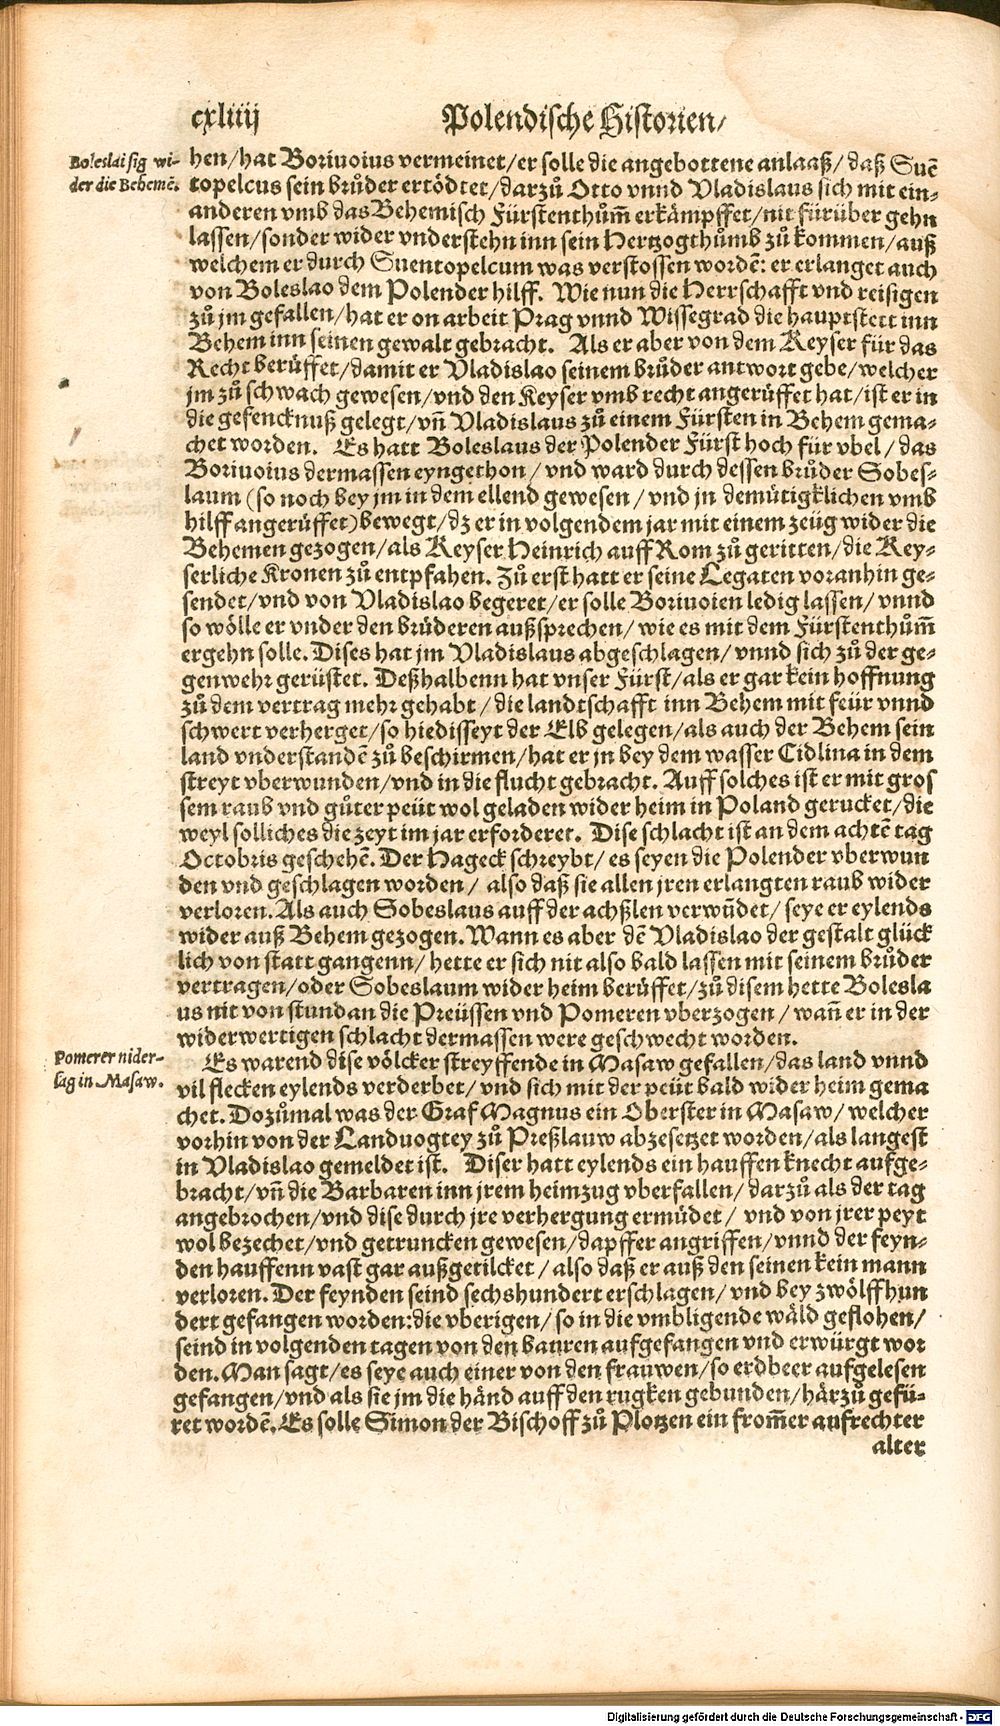 cxliiij
Polendische Historien/
Boleslai sig wi-
der die Behemẽ.
hen/hat Boriuoius vermeinet/er solle die angebottene anlaaß/daß Suẽ
topelcus sein brůder ertödtet/darzů Otto vnnd Vladislaus sich mit ein-
anderen vmb das Behemisch Fürstenthům̃ erkämpffet/nit fürüber gehn
lassen/sonder wider vnderstehn inn sein Hertzogthůmb zů kommen/auß
welchem er durch Suentopelcum was verstossen wordẽ: er erlanget auch
von Boleslao dem Polender hilff. Wie nun die Herrschafft vnd reisigen
zů jm gefallen/hat er on arbeit Prag vnnd Wissegrad die hauptstett inn
Behem inn seinen gewalt gebracht. Als er aber von dem Keyser für das
Recht berüffet/damit er Vladislao seinem brůder antwort gebe/welcher
jm zů schwach gewesen/vnd den Keyser vmb recht angerüffet hat/ist er in
die gefencknuß gelegt/vñ Vladislaus zů einem Fürsten in Behem gema-
chet worden. Es hatt Boleslaus der Polender Fürst hoch für vbel/das
Boriuoius dermassen eyngethon/vnd ward durch dessen brůder Sobes-
laum (so noch bey jm in dem ellend gewesen/vnd jn demütigklichen vmb
hilff angerüffet) bewegt/dz er in volgendem jar mit einem zeüg wider die
Behemen gezogen/als Keyser Heinrich auff Rom zů geritten/die Key-
serliche Kronen zů entpfahen. Zů erst hatt er seine Legaten voranhin ge-
sendet/vnd von Vladislao begeret/er solle Boriuoien ledig lassen/vnnd
so wölle er vnder den brüderen außsprechen/wie es mit dem Fürstenthům̃
ergehn solle. Dises hat jm Vladislaus abgeschlagen/vnnd sich zů der ge-
genwehr gerüstet. Deßhalbenn hat vnser Fürst/als er gar kein hoffnung
zů dem vertrag mehr gehabt/die landtschafft inn Behem mit feür vnnd
schwert verherget/so hiedisseyt der Elb gelegen/als auch der Behem sein
land vnderstandẽ zů beschirmen/hat er jn bey dem wasser Cidlina in dem
streyt vberwunden/vnd in die flucht gebracht. Auff solches ist er mit gros
sem raub vnd gůter peüt wol geladen wider heim in Poland gerucket/die
weyl solliches die zeyt im jar erforderet. Dise schlacht ist an dem achtẽ tag
Octobris geschehẽ. Der Hageck schreybt/es seyen die Polender vberwun
den vnd geschlagen worden/also daß sie allen jren erlangten raub wider
verloren. Als auch Sobeslaus auff der achßlen verwũdet/seye er eylends
wider auß Behem gezogen. Wann es aber dẽ Vladislao der gestalt glück
lich von statt gangenn/hette er sich nit also bald lassen mit seinem brůder
vertragen/oder Sobeslaum wider heim berüffet/zů disem hette Bolesla
us nit von stund an die Preüssen vnd Pomeren vberzogen/wañ er in der
widerwertigen schlacht dermassen were geschwecht worden.
Pomerer nider-
lag in Masaw.
Es warend dise völcker streyffende in Masaw gefallen/das land vnnd
vil flecken eylends verderbet/vnd sich mit der peüt bald wider heim gema
chet. Dozůmal was der Graf Magnus ein Oberster in Masaw/welcher
vorhin von der Landuogtey zů Preßlauw abgesetzet worden/als langest
in Vladislao gemeldet ist. Diser hatt eylends ein hauffen knecht aufge-
bracht/vñ die Barbaren inn jrem heimzug vberfallen/darzů als der tag
angebrochen/vnd dise durch jre verhergung ermüdet/vnd von jrer peyt
wol bezechet/vnd getruncken gewesen/dapffer angriffen/vnnd der feyn-
den hauffenn vast gar außgetilcket/also daß er auß den seinen kein mann
verloren. Der feynden seind sechshundert erschlagen/vnd bey zwölffhun
dert gefangen worden:die vberigen/so in die vmbligende wäld geflohen/
seind in volgenden tagen von den bauren aufgefangen vnd erwürgt wor
den. Man sagt/es seye auch einer von den frauwen/so erdbeer aufgelesen
gefangen/vnd als sie jm die händ auff den rugken gebunden/härzů gefü-
ret wordẽ. Es solle Simon der Bischoff zů Plotzen ein from̃er aufrechter
alter
Digitalisierung gefördert durch die Deutsche Forschungsgemeinschaft - DFG